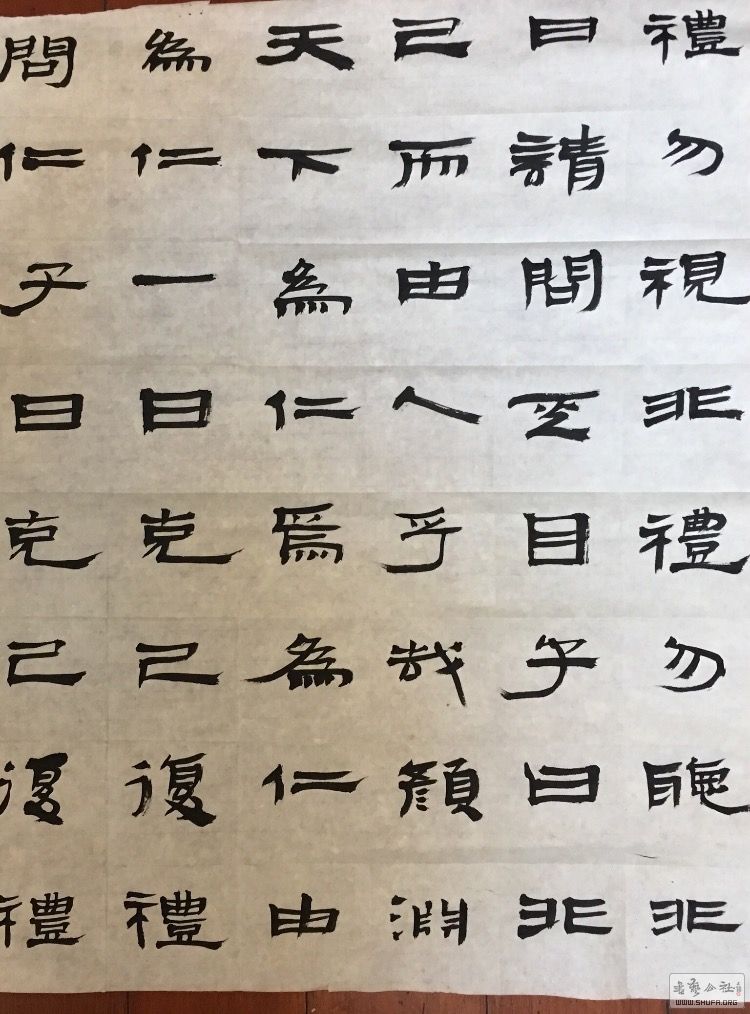 問仁子曰克己復禮
為仁一日克己復禮
天下為仁焉為仁由
己而由人乎哉顏淵
曰請問目子曰非
禮勿視非禮勿聽非
书艺公社
WWW.SHUFA.ORG